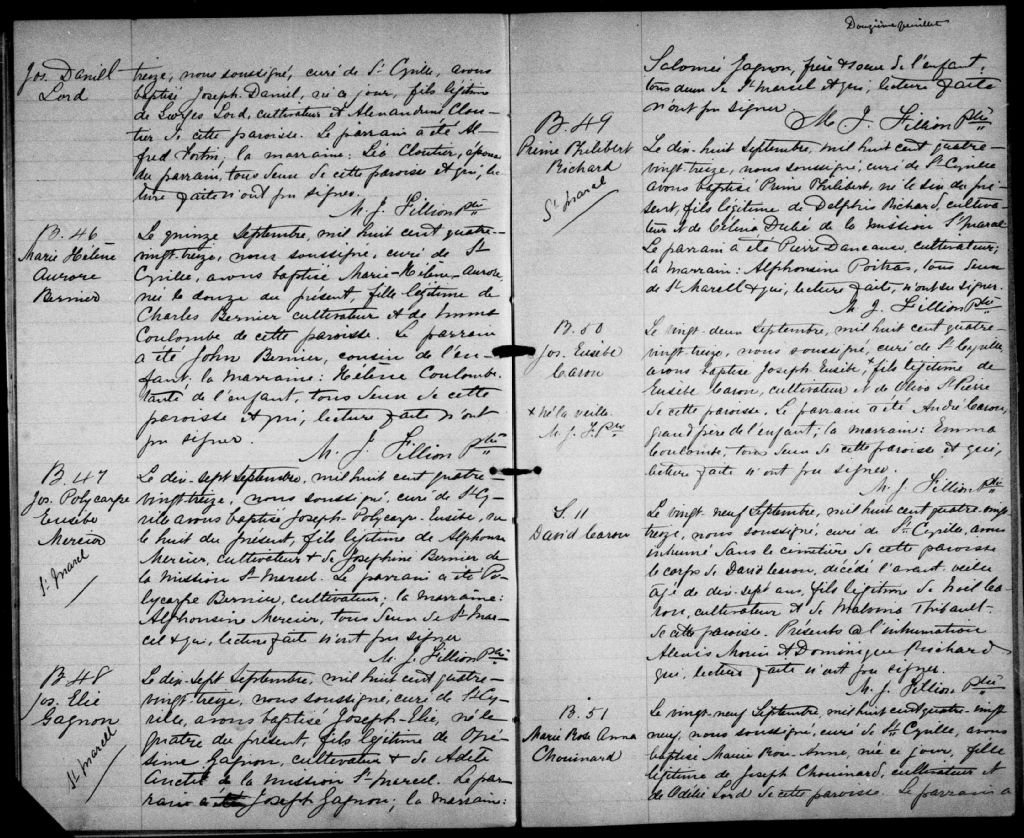 Jos. Daniel
Lord
treize, nous soussigné, curé de St Cyrille, avons
baptisé Joseph-Daniel, né ce jour, fils légitime
de Georges Lord, cultivateur et Alexandrine Clou-
tier de cette paroisse. Le parrain a été Al-
fred Fortin; la marraine: Léa Cloutier, épouse
du parrain, tous deux de cette paroisse et qui, lec-
ture faite n'ont pu signer.
M. J. Fillion Ptre
B. 46
Marie Hélène
Aurore
Bernier
Le quinze Septembre, mil huit cent quatre-
vingt-treize, nous soussigné, curé de St
Cyrille, avons baptisé Marie-Hélène-Aurore
née le douze du présent, fille légitime de
Charles Bernier cultivateur et de Emma
Coulombe de cette paroisse. Le parrain
a été John Bernier, cousin de l'en-
fant: la marraine: Hélène Coulombe.
tante de l'enfant, tous deux de cette
paroisse & qui, lecture faite n'ont
pu signer.
M. J. Fillion Ptre
B. 47
Jos. Polycarpe
Eusèbe
Mercier
St Marcel
Le dix-sept Septembre, mil huit cent quatre-
vingt-treize, nous soussigné, curé de St Cy-
rille avons baptisé Joseph-Polycarpe-Eusèbe, né
le huit du présent, fils légitime de Alphonse
Mercier, cultivateur & de Josephine Bernier de
la mission St Marcel. Le parrain a été Po-
lycarpe Bernier, cultivateur; la marraine:
Alphonsine Mercier, tous deux de St Mar-
cel & qui, lecture faite n'ont pu signer
M. J. Fillion Ptre
B. 48
Jos. Elie
Gagnon
St Marcel
Le dix-sept Septembre, mil huit cent quatre-
vingt-treize, nous soussigné, curé de St Cy-
rille, avons baptisé Joseph-Elie, né le
quatre du présent, fils légitime de Oné-
sime Gagnon, cultivateur & de Adèle
Anctil de la mission St Marcel. Le par-
rain a été Joseph Gagnon; la marraine:
Douzième feuillet
Salomée Gagnon, frère & soeur de l'enfant:
tous deux de St Marcel et qui, lecture faite
n'ont pu signer.
M. J. Fillion Ptre
B. 49
Pierre Philibert
Richard
St Marcel
Le dix-huit Septembre, mil huit cent quatre-
vingt-treize, nous soussigné, curé de St Cyrille
avons baptisé Pierre Philibert, né le six du pré-
sent, fils légitime de Delphis Richard, cultiva-
teur et de Célina Dubé de la mission St Marcel
Le parrain a été Pierre Danceause, cultivateur;
la marrain: Alphonsine Poitras, tous deux
de St Marcell & qui, lecture faite, n'ont su signer.
M. J. Fillion Ptre
B. 50
Jos. Eusèbe
Caron
+ né la veille.
M. J. F. Ptre
Le vingt-deux Septembre, mil huit cent quatre-
vingt-treize, nous soussigné, curé de St Cyrille,
avons baptisé Joseph Eusèbe, + fils légitime de
Eusèbe Caron, cultivateur et de Olive St Pierre
de cette paroisse. Le parrain a été André Caron,
grand père de l'enfant; la marraine: Emma
Coulombe; tous deux de cette paroisse et qui,
lecture faite n'ont pu signer.
M. J. Fillion Ptre
S. 11
David Caron
Le vingt-neuf Septembre, mil huit cent quatre-vingt
treize, nous soussigné, curé de St Cyrille, avons
inhumé dans le cimetière de cette paroisse
le corps de David Caron, décédé l'avant-veille
âgé de dix-sept ans, fils légitime de Noël Ca-
ron, cultivateur et de Malvina Thibault-
de cette paroisse. Présents à l'inhumation
Alexis Morin et Dominique Pischard
qui, lecture faite n'ont pu signer.
M. J. Fillion Ptre
B. 51
Marie Rose Anna
Chouinard
Le vingt-neuf Septembre, mil huit cent quatre-vingt
neuf, nous soussigné, curé de St Cyrille, avons
baptisé Marie Rose-Anne, née ce jour, fille
légitime de Joseph Chouinard, cultivateur et
de Odélie Lord de cette paroisse. Le parrain a